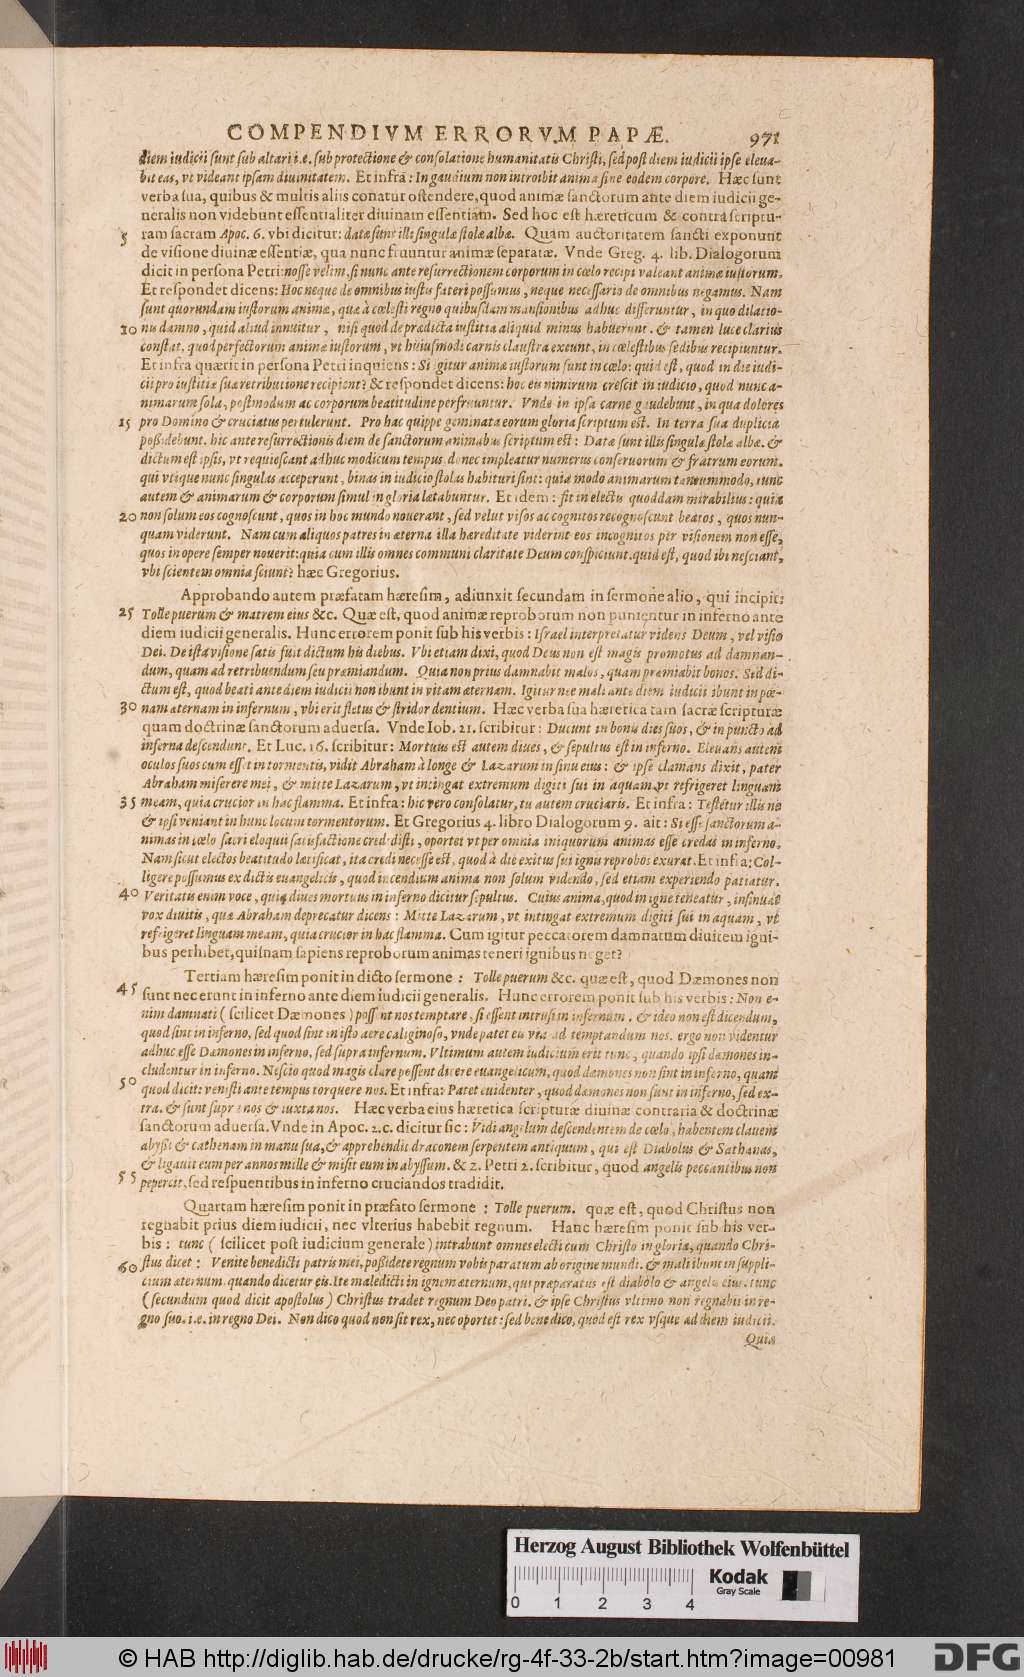 COMPENDIVM ERRORVM PAPÆ. 971
diem iudicii sunt sub altari i.e. sub protectione & consolatione humanitatis Christi, sed post diem iudicii ipse eleua-
bit eas, vt videant ipsam diuinitatem. Et infrà: In gaudium non introibit anima sine eodem corpore. Hæc sunt
verba sua, quibus & multis aliis conatur ostendere, quod animæ sanctorum ante diem iudicii ge-
neralis non videbunt essentialiter diuinam essentiam. Sed hoc est hæreticum & contra scriptu-
5 ram sacram Apoc. 6. vbi dicitur: datæ sunt illis singulæ stolæ albæ. Quam auctoritatem sancti exponunt
de visione diuinæ essentiæ, qua nunc fruuntur animæ separatæ. Vnde Greg. 4. lib. Dialogorum
dicit in persona Petri: nosse velim, si nunc ante resurrectionem corporum in cœlo recipi valeant animæ iustorum.
Et respondet dicens: Hoc neque de omnibus iustis fateri possumus, neque necessario de omnibus negamus. Nam
sunt quorundam iustorum animæ, quæ à cœlesti regno quibusdam mansionibus adhuc differuntur, in quo dilatio-
10 nis damno, quid aliud innuitur, nisi quod de prædicta iustitia aliquid minus habuerunt. & tamen luce clarius
constat, quod perfectorum animæ iustorum, vt huiusmodi carnis claustra exeunt, in cœlestibus sedibus recipiuntur.
Et infra quærit in persona Petri inquiens: Si igitur animæ iustorum sunt in cœlo: quid est, quod in die iudi-
cii pro iustitiæ suæ retributione recipient? & respondet dicens: hoc eis nimirum crescit in iudicio, quod nunc a-
nimarum sola, postmodum ac corporum beatitudine perfruuntur. Vnde in ipsa carne gaudebunt, in qua dolores
15 pro Domino & cruciatus pertulerunt. Pro hac quippe geminata eorum gloria scriptum est. In terra sua duplicia
possidebunt. hic ante resurrectionis diem de sanctorum animabus scriptum est: Datæ sunt illis singulæ stolæ albæ. &
dictum est ipsis, vt requiescant adhuc modicum tempus, donec impleatur numerus conseruorum & fratrum eorum.
qui vtique nunc singulas acceperunt, binas in iudicio stolas habituri sint: quia modo animarum tantummodo, tunc
autem & animarum & corporum simul in gloria lætabuntur. Et idem: fit in electis quoddam mirabilius: quia
20 non solum eos cognoscunt, quos in hoc mundo nouerant, sed velut visos ac cognitos recognoscunt beatos, quos nun-
quam viderunt. Nam cum aliquos patres in æterna illa hæreditate viderint eos incognitos per visionem non esse,
quos in opere semper nouerit: quia cum illis omnes communi claritate Deum conspiciunt. quid est, quod ibi nesciant,
vbi scientem omnia sciunt? hæc Gregorius.
Approbando autem præfatam hæresim, adiunxit secundam in sermone alio, qui incipit:
25 Tolle puerum & matrem eius &c. Quæ est, quod animæ reproborum non punientur in inferno ante
diem iudicii generalis. Hunc errorem ponit sub his verbis: Israel interpretatur videns Deum, vel visio
Dei. De ista visione satis fuit dictum his diebus. Vbi etiam dixi, quod Deus non est magis promotus ad damnan-
dum, quam ad retribuendum seu præmiandum. Quia non prius damnabit malos, quam præmiabit bonos. Sed di-
ctum est, quod beati ante diem iudicii non ibunt in vitam æternam. Igitur nec mali ante diem iudicii ibunt in pœ-
30 nam æternam in infernum, vbi erit fletus & stridor dentium. Hæc verba sua hæretica tam sacræ scripturæ
quam doctrinæ sanctorum aduersa. Vnde Iob. 21. scribitur: Ducunt in bonis dies suos, & in puncto ad
inferna descendunt. Et Luc. 16. scribitur: Mortuus est autem diues, & sepultus est in inferno. Eleuans autem
oculos suos cum esset in tormentis, vidit Abraham à longe & Lazarum in sinu eius: & ipse clamans dixit, pater
Abraham miserere mei, & mitte Lazarum, vt intingat extremum digiti sui in aquam vt refrigeret linguam
35 meam, quia crucior in hac flamma. Et infra: hic vero consolatur, tu autem cruciaris. Et infra: Testetur illis ne
& ipsi veniant in hunc locum tormentorum. Et Gregorius 4. libro Dialogorum 9. ait: Si esse sanctorum a-
nimas in cœlo sacri eloquii satisfactione credidisti, oportet vt per omnia iniquorum animas esse credas in inferno.
Nam sicut electos beatitudo lætificat, ita credi necesse est, quod à die exitus sui ignis reprobos exurat. Et infra: Col-
ligere possumus ex dictis euangelicis, quod incendium anima non solum videndo, sed etiam experiendo patiatur.
40 Veritatis enim voce, quia diues mortuus in inferno dicitur sepultus. Cuius anima, quod in igne teneatur, insinuat
vox diuitis, quæ Abraham deprecatur dicens: Mitte Lazarum, vt intingat extremum digiti sui in aquam, vt
refrigeret linguam meam, quia crucior in hac flamma. Cum igitur peccatorem damnatum diuitem igni-
bus perhibet, quisnam sapiens reproborum animas teneri ignibus neget?
Tertiam hæresim ponit in dicto sermone: Tolle puerum &c. quæ est, quod Dæmones non
45 sunt nec erunt in inferno ante diem iudicii generalis. Hunc errorem ponit sub his verbis: Non e-
nim damnati (scilicet Dæmones) possent nos temptare, si essent intrusi in infernum. & ideo non est dicendum,
quod sint in inferno, sed quod sint in isto aere caliginoso, vnde patet eis via ad temptandum nos. ergo non videntur
adhuc esse Dæmones in inferno, sed supra infernum. Vltimum autem iudicium erit tunc, quando ipsi dæmones in-
cludentur in inferno. Nescio quod magis clare possent dicere euangelicum, quod dæmones non sint in inferno, quam
50 quod dicit: venisti ante tempus torquere nos. Et infra: Patet euidenter, quod dæmones non sunt in inferno, sed ex-
tra. & sunt supra nos & iuxta nos. Hæc verba eius hæretica scripturæ diuinæ contraria & doctrinæ
sanctorum aduersa. Vnde in Apoc. 2. c. dicitur sic: Vidi angelum descendentem de cœlo, habentem clauem
abyssi & cathenam in manu sua, & apprehendit draconem serpentem antiquum, qui est Diabolus & Sathanas,
& ligauit eum per annos mille & misit eum in abyssum. & 2. Petri 2. scribitur, quod angelis peccantibus non
55 pepercit, sed respuentibus in inferno cruciandos tradidit.
Quartam hæresim ponit in præfato sermone: Tolle puerum. quæ est, quod Christus non
regnabit prius diem iudicii, nec vlterius habebit regnum. Hanc hæresim ponit sub his ver-
bis: tunc (scilicet post iudicium generale) intrabunt omnes electi cum Christo in gloria, quando Chri-
stus dicet: Venite benedicti patris mei, possidete regnum vobis paratum ab origine mundi. & mali ibunt in suppli-
60 cium æternum. quando dicetur eis. Ite maledicti in ignem æternum, qui præparatus est diabolo & angelis eius. tunc
(secundum quod dicit apostolus) Christus tradet regnum Deo patri. & ipse Christus vltimo non regnabit in re-
gno suo. i.e. in regno Dei. Non dico quod non sit rex, nec oportet: sed bene dico, quod est rex vsque ad diem iudicii.
Quia
Herzog August Bibliothek Wolfenbüttel
Kodak
Gray Scale
0 1 2 3 4
© HAB http://diglib.hab.de/drucke/rg-4f-33-2b/start.htm?image=00981
DFG